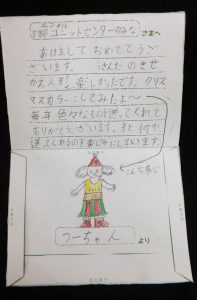 ユニットセンターのみな さまへ
あけまして おめでとうご
ざいます。 さんた のきせ
かえ人形、楽しかったです。クリス
マスカラーにしてみたよ〜
毎年 色々なものを送ってくれて
ありがとうございます。また 何か
送ってくれるのを楽しみにしています。
こんな感じ
つーちゃん より